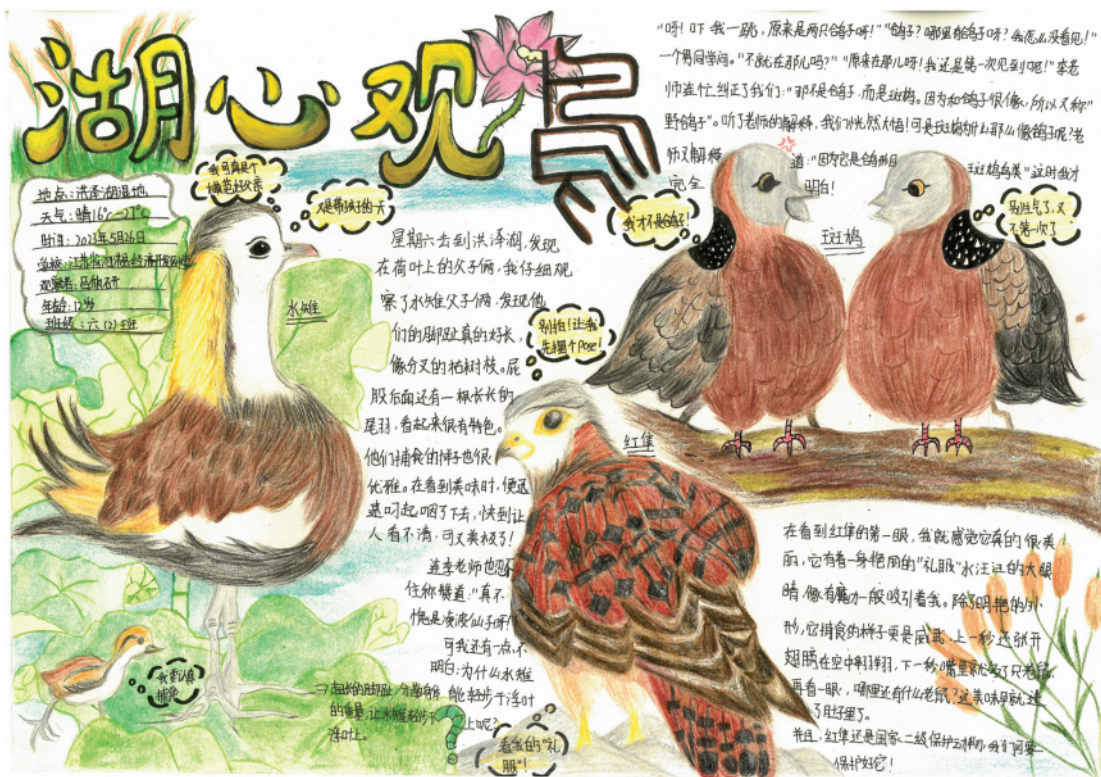 湖心观鸟
地点：洪泽湖湿地
天气：晴16℃-27℃
时间：2023年5月26日
年龄：12岁
班级：六（2）班
我可真是个
模范好父亲
又是带孩子的一天
水雉
星期六去到洪泽湖，发现
在荷叶上的父子俩，我仔细观
察了水雉父子俩，发现他
们的脚趾真的好长，
像分叉的枯树枝。屁
股后面还有一根长长的
尾羽，看起来很有特色。
他们捕食的样子也很
优雅。在看到美味时，便迅
速叼起咽了下去，快到让
人看不清，可又美极了！
连李老师也忍不
住称赞道：“真不
愧是凌波仙子呀！”
可我还有一点不
明白：为什么水雉
能轻步于浮叶
上呢？
⇒超长的脚趾，分散身体
的重量，让水雉轻步于
浮叶上。
我要认真
捕食
“呀！吓我一跳，原来是两只鸽子呀！”“鸽子？哪里有鸽子呀？我怎么没看见！”
一个男同学问。“不就在那儿吗？”“原来在那儿呀！我还是第一次见到呢！”李老
师连忙纠正了我们：“那不是鸽子，而是斑鸠。因为和鸽子很像，所以又称“
野鸽子”。听了老师的解释，我们恍然大悟！可是斑鸠为什么那么像鸽子呢？老
师又解释道：“因为它是鸽形目斑鸠鸟类”这时我才
完全明白！
我才不是鸽子！
别生气了，又
不是第一次了
斑鸠
别拍！让我
先摆个pose！
红隼
看我的“礼
服”！
在看到红隼的第一眼，我就感觉它真的很美
丽，它有着一身艳丽的“礼服”水汪汪的大眼
睛，像有魔力一般吸引着我。除了明艳的外
形，它捕食的样子更是威武，上一秒还张开
翅膀在空中翱翔，下一秒，嘴里就多了只老鼠，
再看一眼，哪里还有什么老鼠？这美味早就进
了肚子里了。
并且，红隼还是国家二级保护动物，我们可要
保护好它！